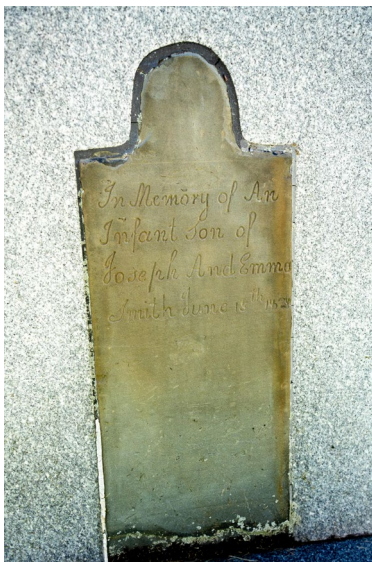 In Memory of An
Infant Son of
Joseph And Emma
Smith June 15th 1828